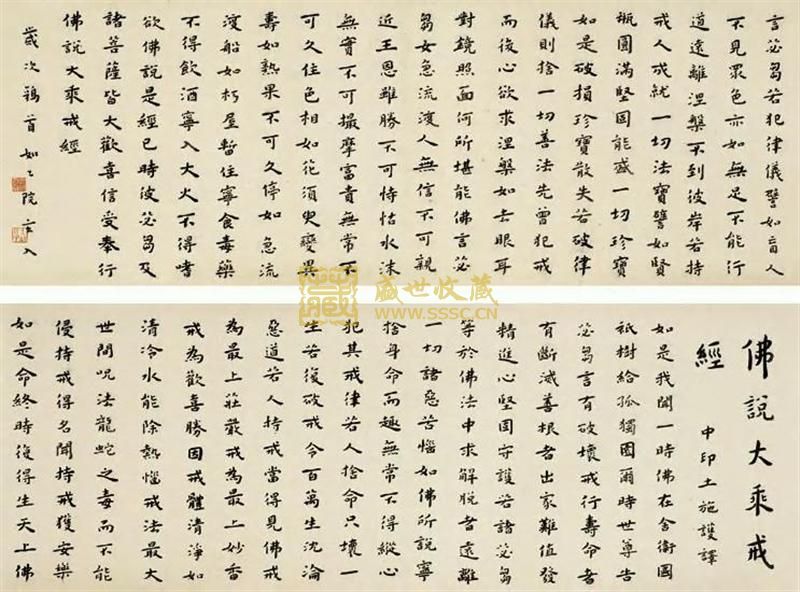 佛說大乘戒
經
中印土施護譯
如是我聞一時佛在舍衛國
祇樹給孤獨園爾時世尊告
苾芻言有破壞戒行壽命者
有斷滅善根者出家難值發
精進心堅固守護若諸苾芻
等於佛法中求解脫者遠離
一切諸惡苦惱如佛所說寧
捨身命而趣無常不得縱心
犯其戒律若人捨命只壞一
生若復破戒令百萬生沈淪
惡道若人持戒當得見佛戒
為最上莊嚴戒為最上妙香
戒為歡喜勝因戒體清淨如
清冷水能除熱惱戒法最大
世間咒法龍蛇之毒而不能
侵持戒得名聞持戒獲安樂
如是命終時復得生天上佛
言苾芻若犯律儀譬如盲人
不見眾色亦如無足不能行
道遠離涅槃不到彼岸若持
戒人成就一切法寶譬如賢
瓶圓滿堅固能盛一切珍寶
如是破損珍寶散失若破律
儀則捨一切善法先曾犯戒
而後心欲求涅槃如去眼耳
對鏡照面何所堪能佛言苾
芻女急流渡人無信不可親
近王恩雖勝不可恃怙水沫
無實不可撮摩富貴無常不
可久住色相如花須臾變異
壽如熟果不可久停如急流
渡船如朽屋暫住寧食毒藥
不得飲酒寧入大火不得嗜
欲佛說是經已時彼苾芻及
諸菩薩皆大歡喜信受奉行
佛說大乘戒經
歲次鶉首如々院
盛世收藏
WWW.SSSC.CN